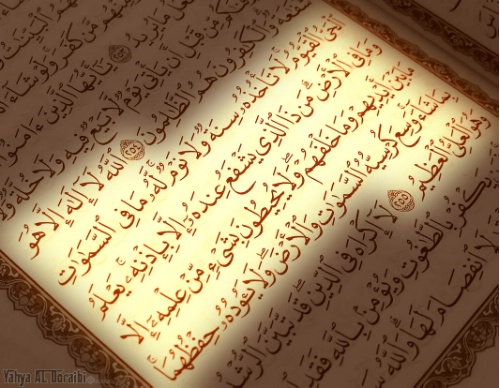 مَّن كَفَرَ وَلَوْ شَآءَ
يَفْعَلُ مَا يُرِيدُ ٢٥٣ يَٰٓأَيُّهَا ٱلَّذِينَ ءَامَنُوٓا۟
مِّن قَبْلِ أَن يَأْتِىَ يَوْمٌ لَّا بَيْعٌ فِيهِ وَلَا خُلَّةٌ
وَٱلْكَٰفِرُونَ هُمُ ٱلظَّٰلِمُونَ ٢٥٤ ٱللَّهُ لَآ إِلَٰهَ إِلَّا هُوَ
ٱلْحَىُّ ٱلْقَيُّومُ لَا تَأْخُذُهُۥ سِنَةٌ وَلَا نَوْمٌ لَّهُۥ مَا فِى ٱلسَّمَٰوَٰتِ
وَمَا فِى ٱلْأَرْضِ مَن ذَا ٱلَّذِى يَشْفَعُ عِندَهُۥٓ إِلَّا بِإِذْنِهِۦ يَعْلَمُ
مَا بَيْنَ أَيْدِيهِمْ وَمَا خَلْفَهُمْ وَلَا يُحِيطُونَ بِشَىْءٍ مِّنْ عِلْمِهِۦٓ إِلَّا
بِمَا شَآءَ وَسِعَ كُرْسِيُّهُ ٱلسَّمَٰوَٰتِ وَٱلْأَرْضَ وَلَا يَـُٔودُهُۥ حِفْظُهُمَا
وَهُوَ ٱلْعَلِىُّ ٱلْعَظِيمُ ٢٥٥ لَآ إِكْرَاهَ فِى ٱلدِّينِ قَد تَّبَيَّنَ ٱلرُّشْدُ
يَكْفُرْ بِٱلطَّٰغُوتِ وَيُؤْمِنۢ بِٱللَّهِ فَقَدِ
لَا ٱنفِصَامَ لَهَا وَٱللَّهُ
Yahya AL-Doraibi